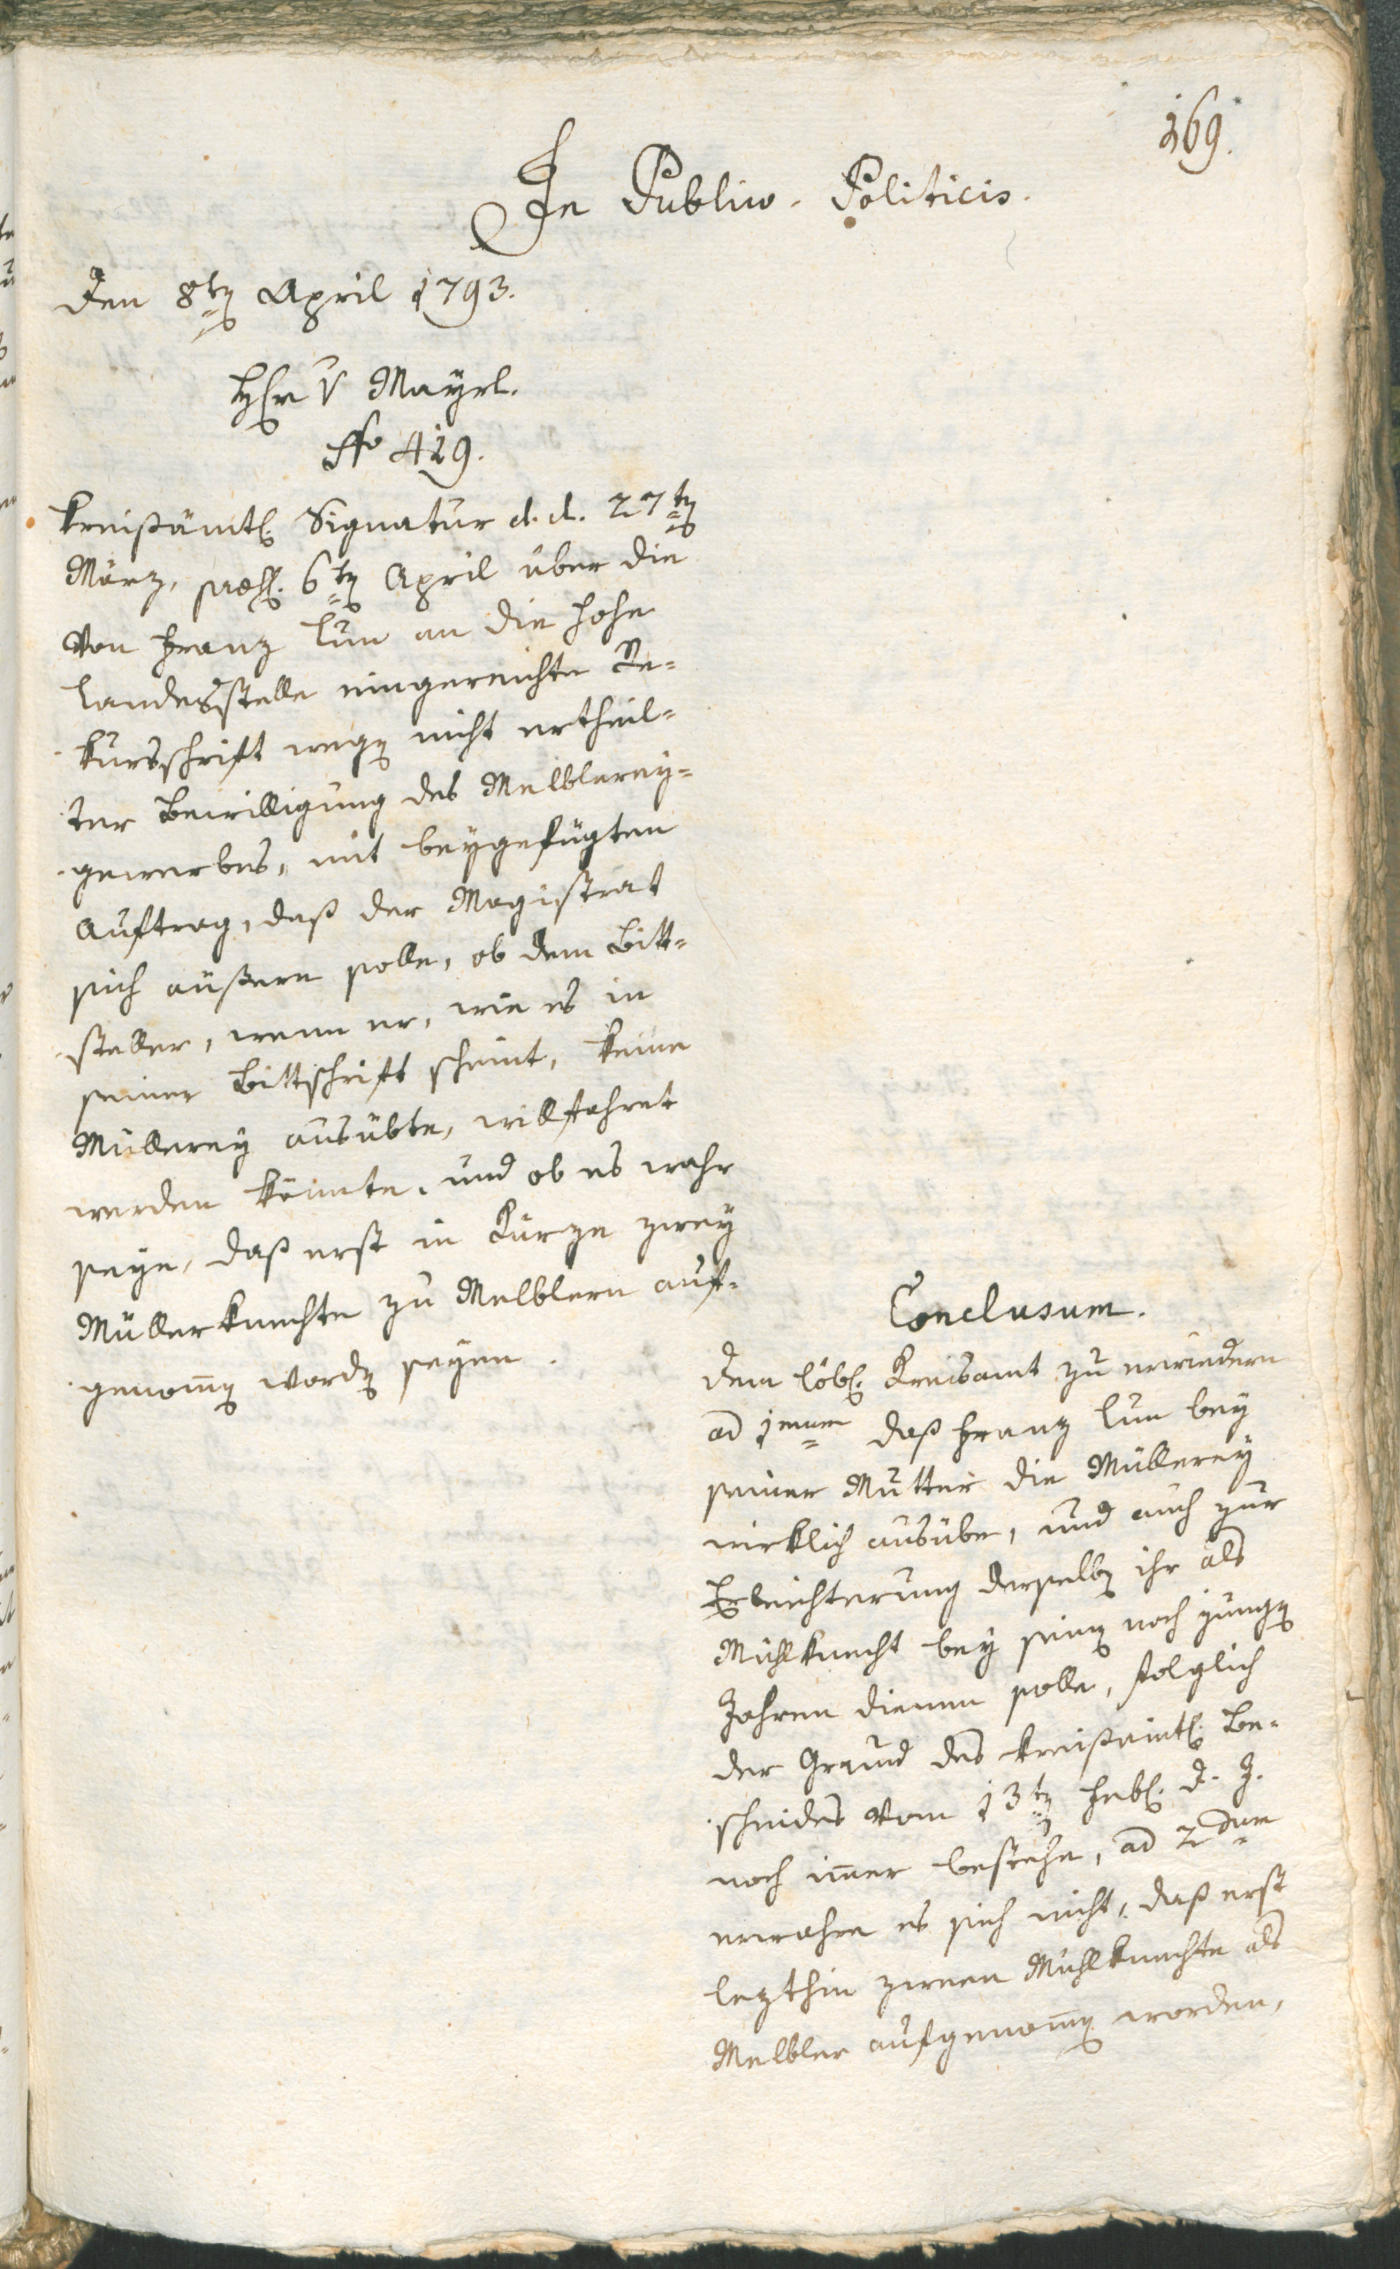 169.
In Publico-Politicis.
Den 8ten April 1793.
Hr v Mayrl.
No 419.
Kreisämtl. Signatur d. d. 27ten
März, praes. 6ten April über die
von Franz Lun an die hohe
Landesstelle eingereichte Re-
kursschrift wegen nicht ertheil-
ter Bewilligung des Melblerey-
gewerbes, mit beygefügten
Auftrag, daß der Magistrat
sich äußern solle, ob dem Bitt-
steller, wenn er, wie es in
seiner Bittschrift scheint, keine
Müllerey ausübte, willfahret
werden könnte, und ob es wahr
seye, daß erst in Kürze zwey
Müllerknechte zu Melblern auf-
genommen worden seyen.
Conclusum.
Dem löbl. Kreisamt zu erwiedern
ad 1mum daß Franz Lun bey
seiner Mutter die Müllerey
wirklich ausübe, und auch zur
Erleichterung derselben ihr als
Mühlknecht bey seinen noch jungen
Jahren dienen solle, folglich
der Grund des kreisämtl. Be-
scheides vom 13ten Febr. d. J.
noch immer bestehe, ad 2dum
erwahre es sich nicht, daß erst
lezthin zween Mühlknechte als
Melbler aufgenommen worden,